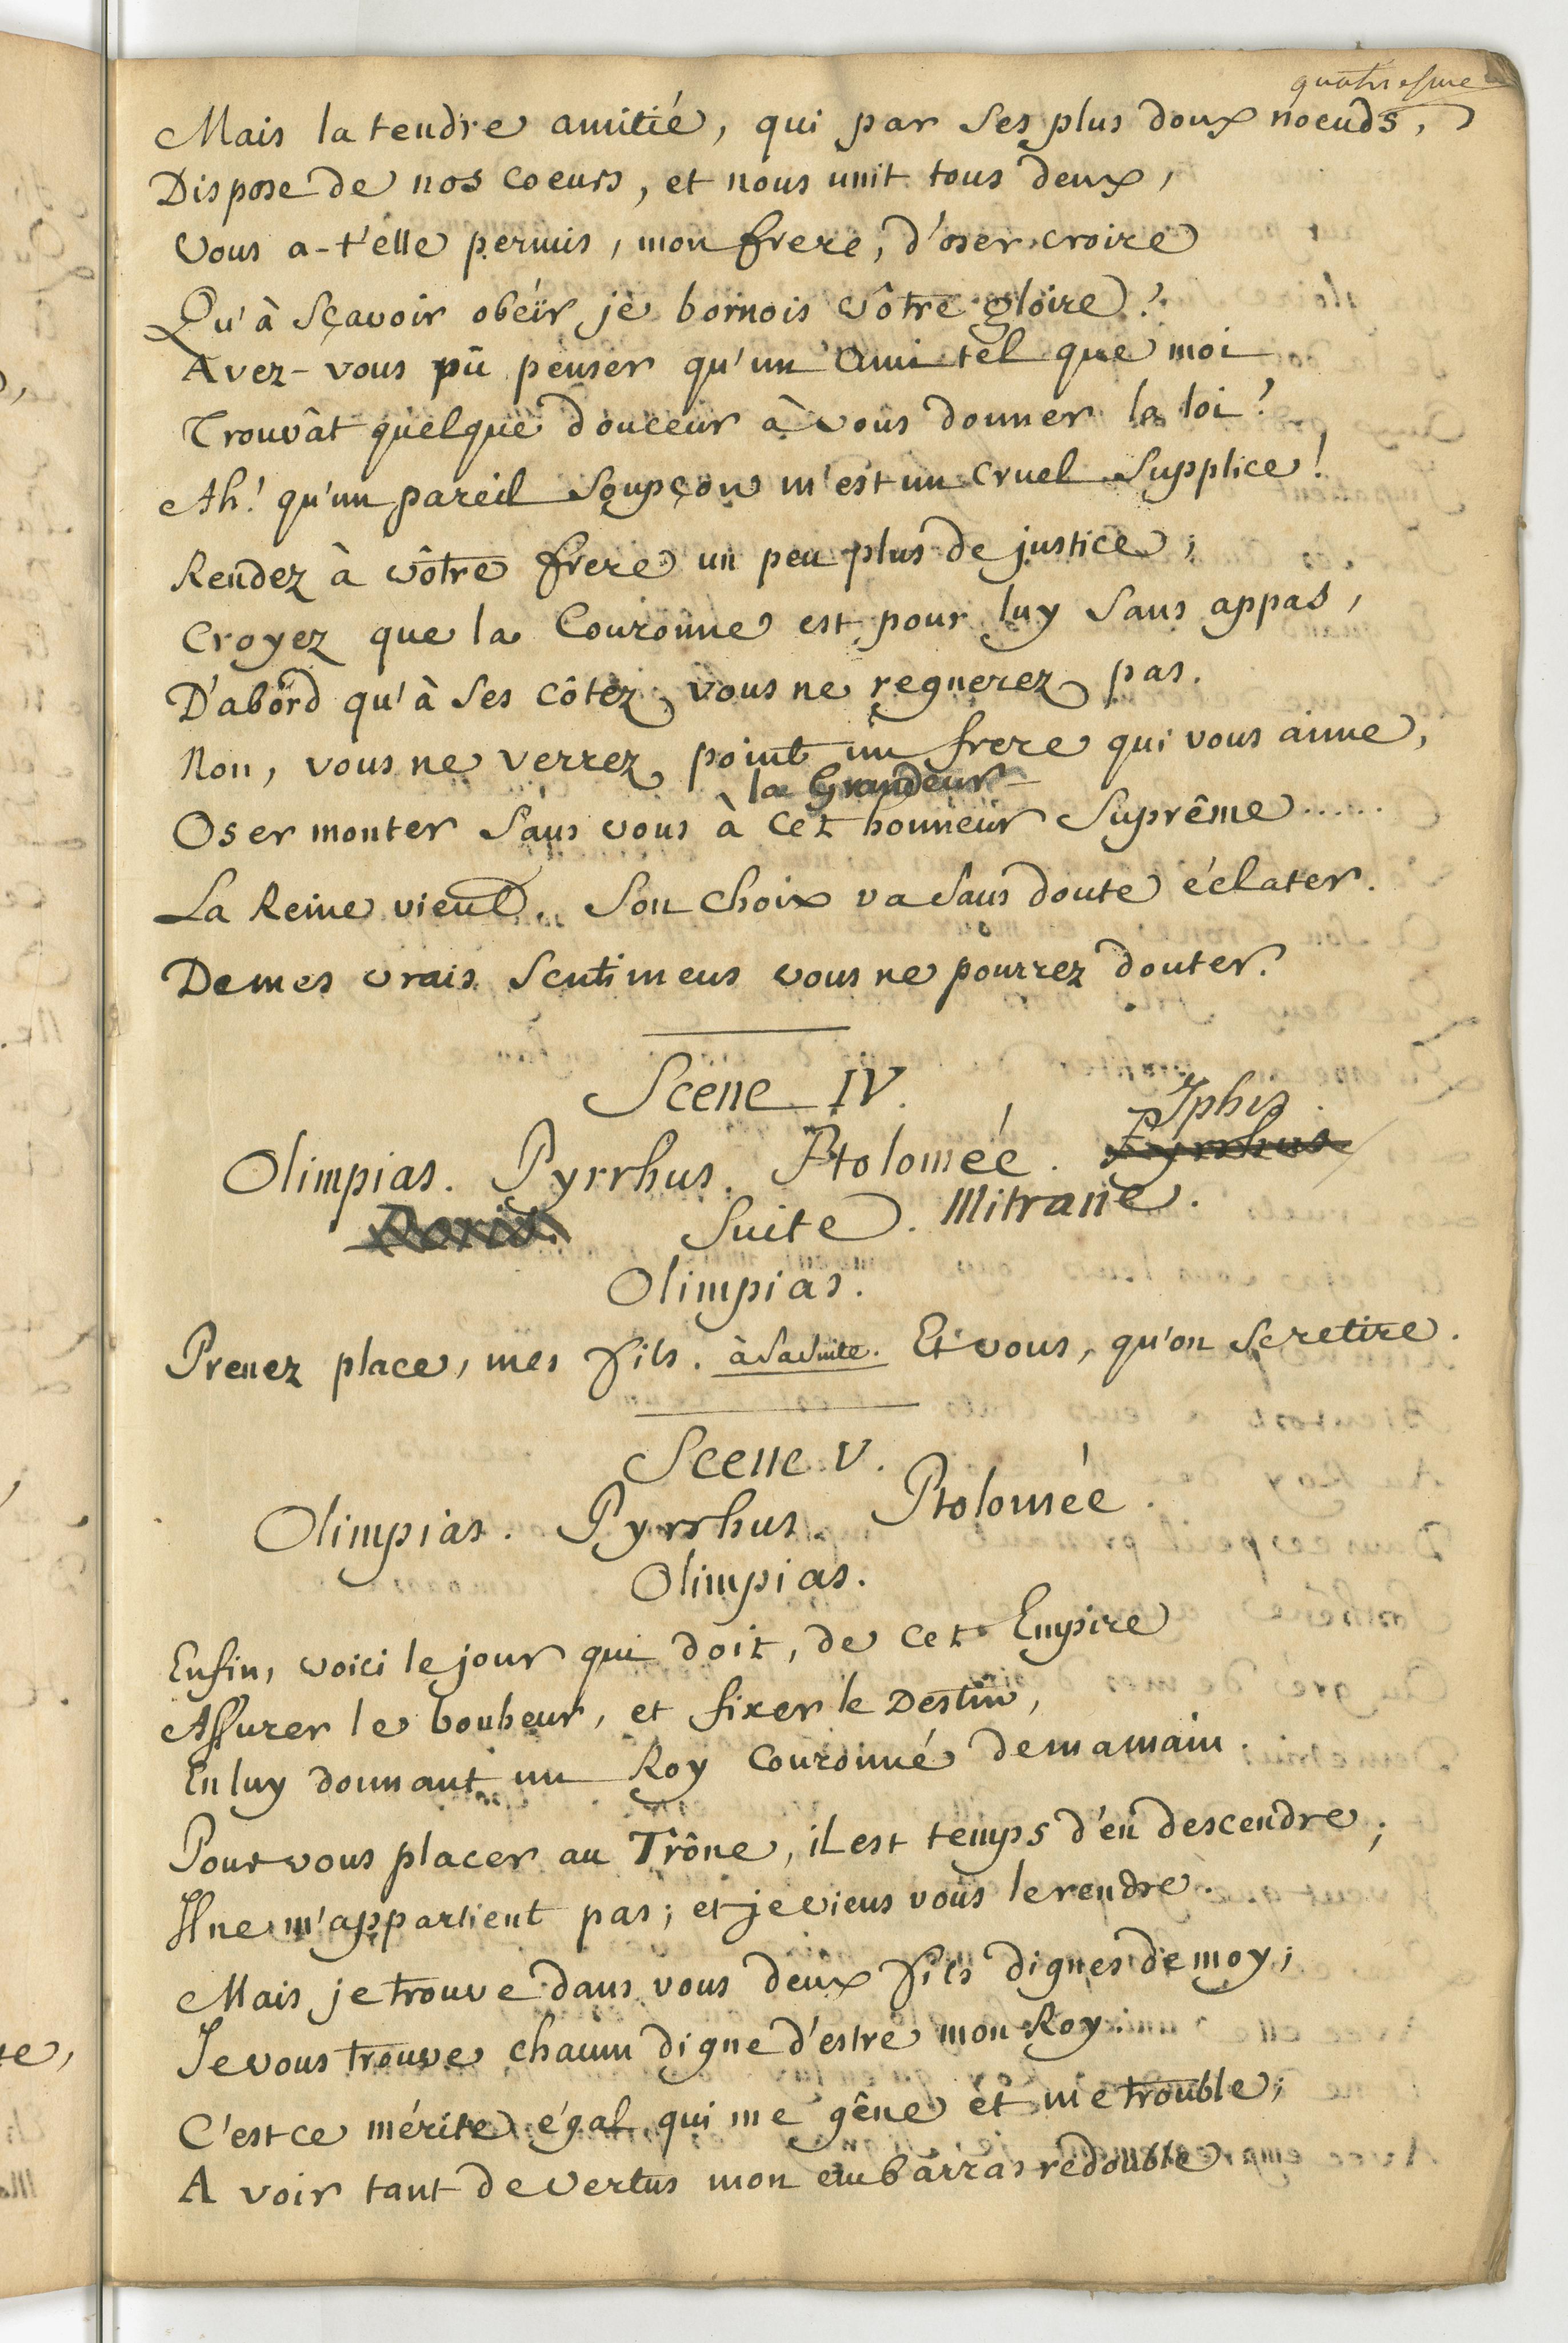 quatriesme
Mais la tendre amitié, qui par ses plus doux noeuds,
Dispose de nos coeurs, et nous unit tous deux,
Vous a-t'élle permis, mon frere, d'oser croire
Qu'à sçavoir obéir je bornois vôtre gloire?
Avez-vous pû penser qu'un ami tel que moi
Trouvât quelque douceur à vous donner la loi?
Ah! qu'un pareil soupçon m'est un cruel supplice!
Rendez à vôtre frere un peu plus de justice;
Croyez que la Couronne est pour luy sans appas,
D'abord qu'à ses côtez vous ne regnerez pas.
Non, vous ne verrez point un frere qui vous aime,
la Grandeur
Oser monter sans vous à cet honneur suprême.....
La Reine vient. Son choix va sans doute éclater.
De mes vrais sentimens vous ne pourrez douter.
Scene IV.
Iphis.
Olimpias. Pyrrhus. Ptolomée. Pyrrhus
Doris. Suite. Mitrane.
Olimpias.
Prenez place, mes fils. à sa suite. Et vous, qu'on se retire.
Scene V.
Olimpias. Pyrrhus. Ptolomée.
Olimpias.
Enfin, voici le jour qui doit, de cet Empire
Assurer le bonheur, et fixer le Destin,
En luy donnant un Roy couronné de ma main.
Pour vous placer au Trône, il est temps d'en descendre;
Il ne m'appartient pas; et je viens vous le rendre.
Mais je trouve dans vous deux fils dignes de moy;
Je vous trouve chacun digne d'estre mon Roy:
C'est ce mérite égal qui me gêne et me trouble;
A voir tant de vertus mon embarras redouble